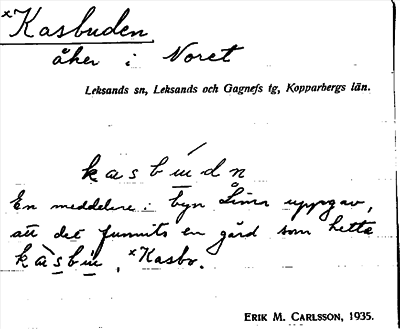 xKasbuden
åker i Noret
Leksands sn, Leksands och Gagnefs tg, Kopparbergs län.
kasbú̲dn
En meddelare i byn Lima uppgav,
att det funnits en gård som hette
kàsbù̲, xKasbo.
ERIK M. CARLSSON, 1935.